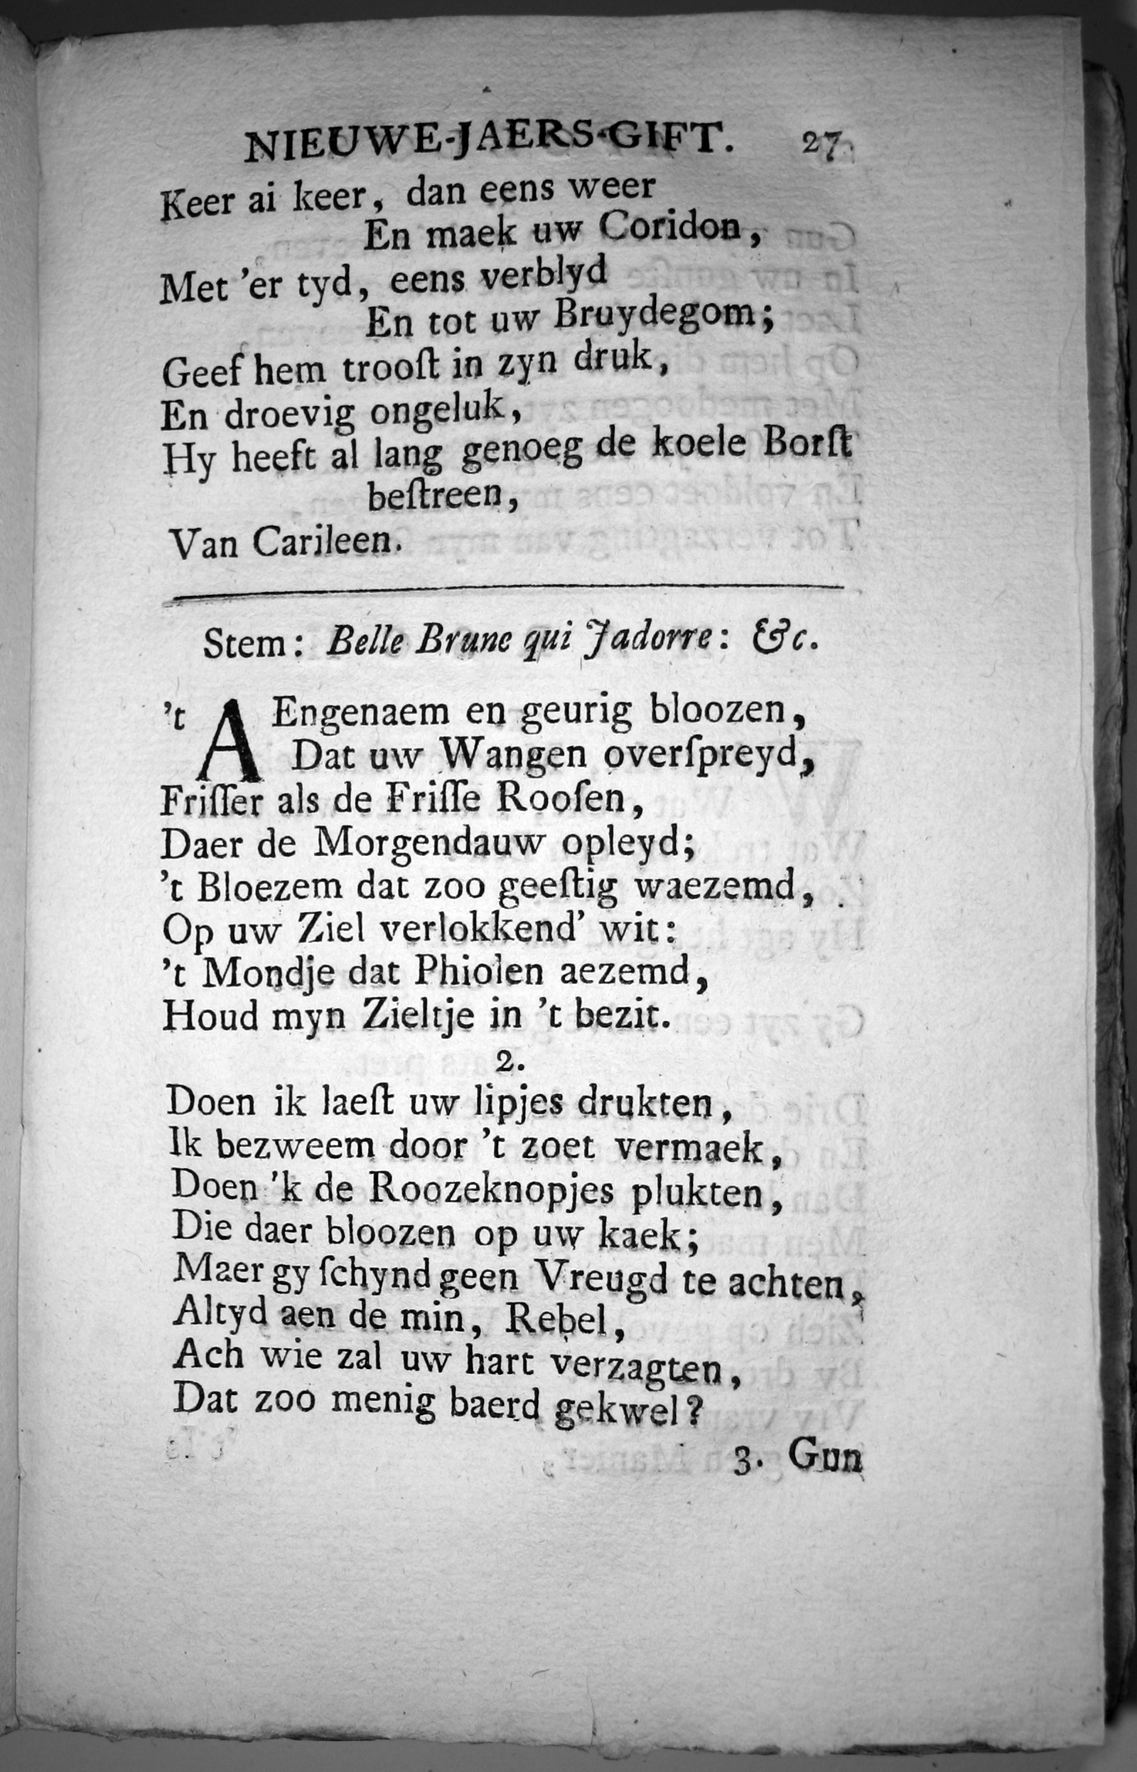 NIEUWE-JAERS-GIFT. 27
Keer ai keer, dan eens weer
En maek uw Coridon,
Met 'er tyd, eens verblyd
En tot uw Bruydegom;
Geef hem trooſt in zyn druk,
En droevig ongeluk,
Hy heeft al lang genoeg de koele Borſt
beſtreen,
Van Carileen.
Stem: Belle Brune qui Jadorre: &c.
't AEngenaem en geurig bloozen,
Dat uw Wangen overſpreyd,
Friſſer als de Friſſe Rooſen,
Daer de Morgendauw opleyd;
't Bloezem dat zoo geeſtig waezemd,
Op uw Ziel verlokkend' wit:
't Mondje dat Phiolen aezemd,
Houd myn Zieltje in 't bezit.
2.
Doen ik laeſt uw lipjes drukten,
Ik bezweem door 't zoet vermaek,
Doen 'k de Roozeknopjes plukten,
Die daer bloozen op uw kaek;
Maer gy ſchynd geen Vreugd te achten,
Altyd aen de min, Rebel,
Ach wie zal uw hart verzagten,
Dat zoo menig baerd gekwel?
3. Gun